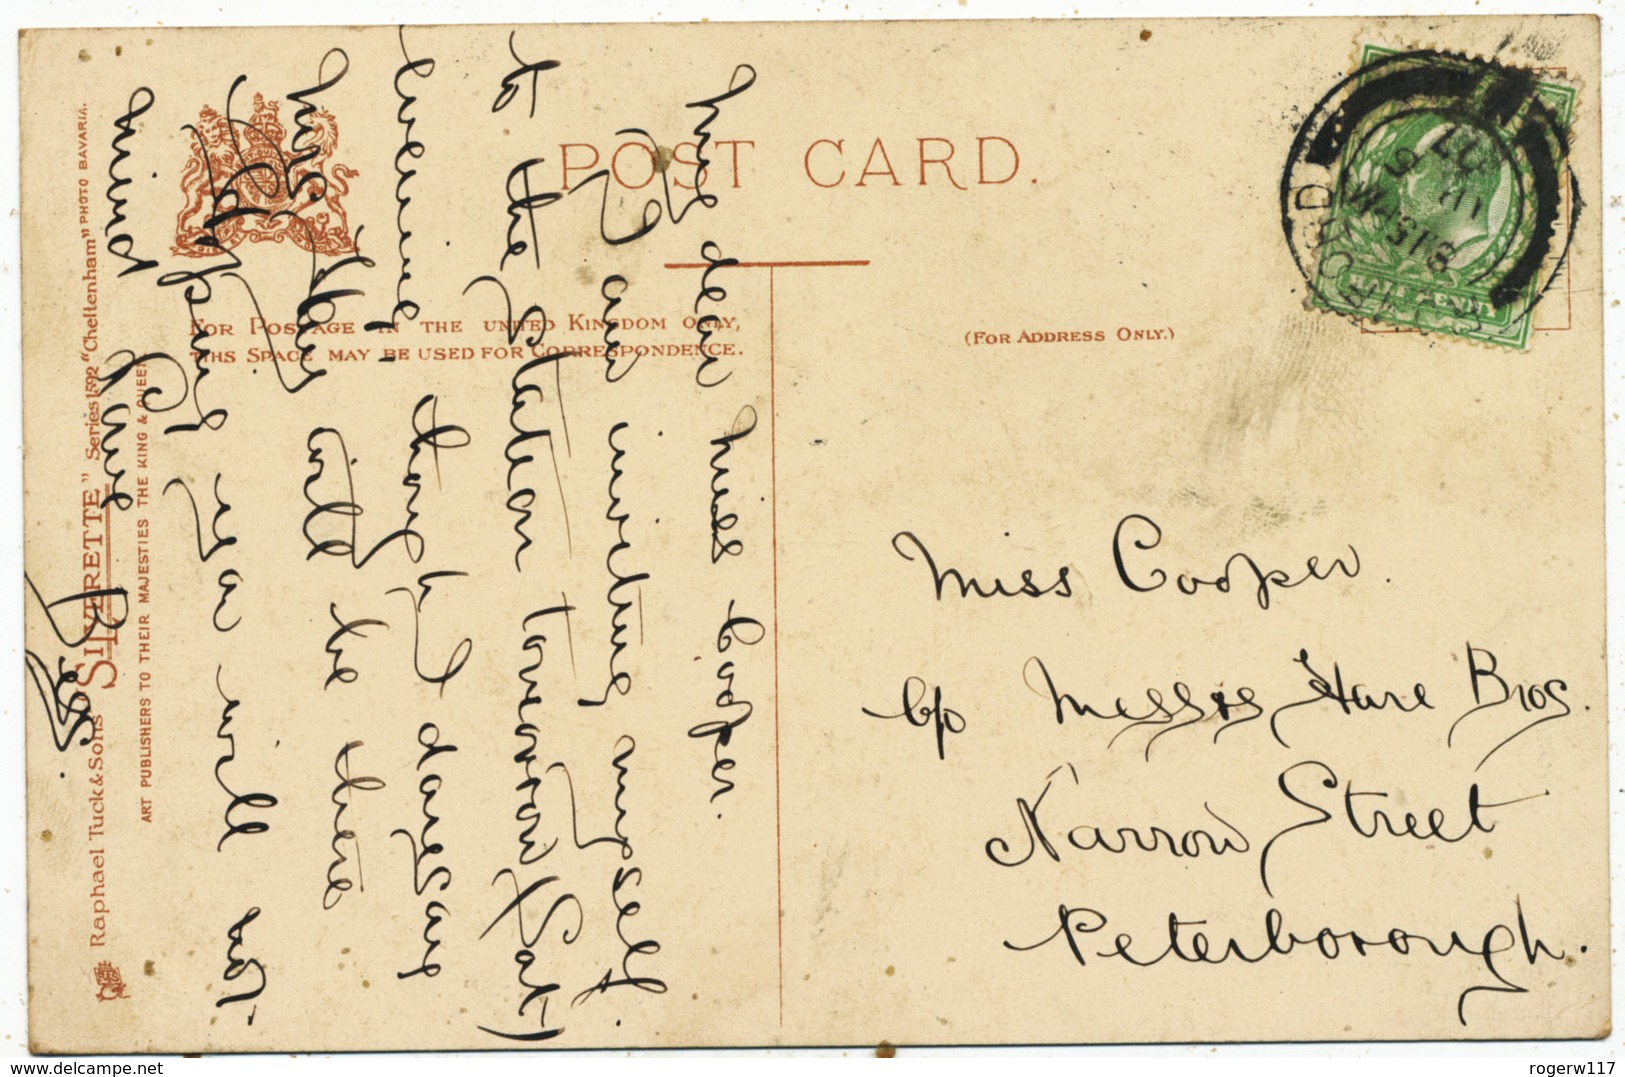 POST CARD.
FOR POSTAGE IN THE UNITED KINGDOM ONLY,
THIS SPACE MAY BE USED FOR CORRESPONDENCE.
(FOR ADDRESS ONLY.)
My dear Miss Cooper.
I am inviting myself.
to the Station tomorrow (Sat)
evening, though I daresay
Mrs will be there
hoping you will not
mind Love
Bess.
Miss Cooper.
c/o Messrs Hare Bros.
Narrow Street
Peterborough.
Raphael Tuck & Sons "SILVERETTE" Series 1592 "Cheltenham" PHOTO BAVARIA.
ART PUBLISHERS TO THEIR MAJESTIES THE KING & QUEEN
HALF PENNY
delcampe.net
rogerw117